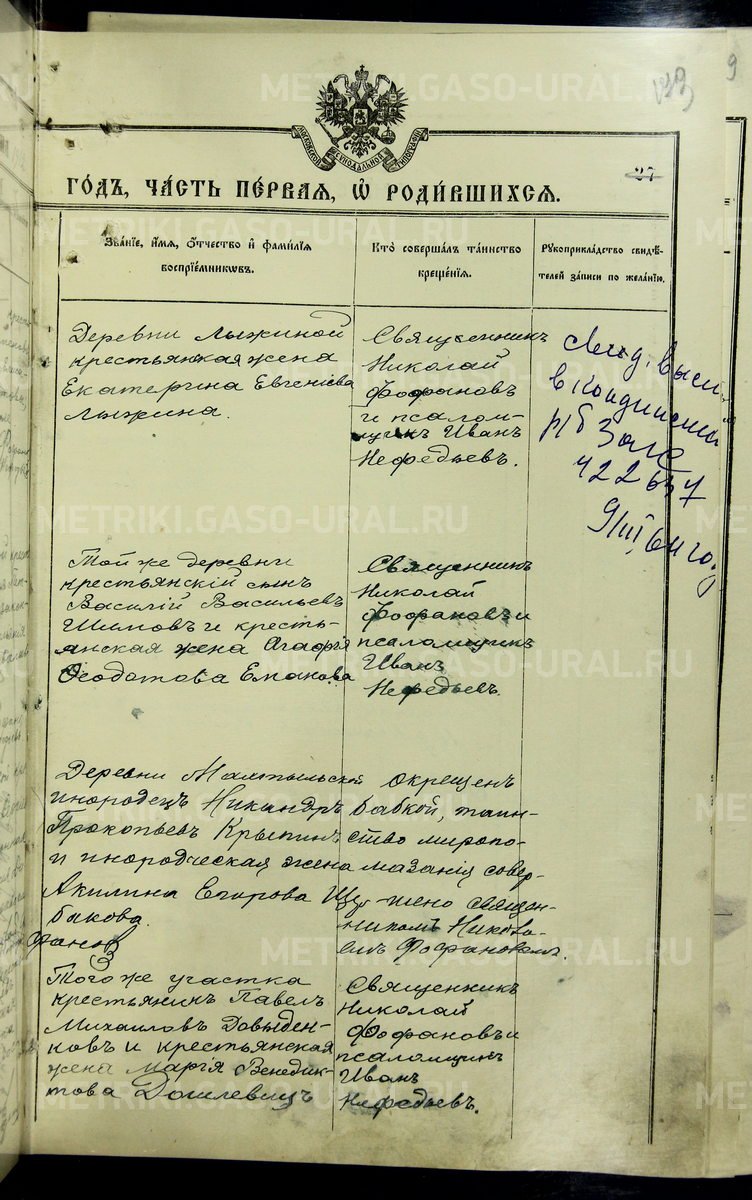 9
МОСКОВСКОЙ СѴНОДАЛЬНОЙ ТИПОГРАФІИ
27
ГО́ДЪ, ЧА́СТЬ ПЕ́РВАЯ, Ѽ РОДИ́ВШИХСѦ.
Зва́нїе, и́мя, о́тчество и҆ фами́лїя
воспрїе́мниковъ.
Кто̀ соверша́лъ та́инство
креще́нїя.
Рꙋкоприкла́дство свидѣ́-
телей за́писи по жела́нїю.
Деревни Лыжиной
крестьянская жена
Екатерина Евгеніева
Лыжина.
Священникъ
Николай
Фофановъ
и псалом-
щикъ Иванъ
Нефедьевъ.
в Кондинский
р/б Загс
9/III 64 году
Той же деревни
крестьянскій сынъ
Василій Васильевъ
Шимовъ и кресть-
янская жена Агафія
Ѳеодотова Еманова.
Священникъ
Николай
Фофановъ и
псаломщикъ
Иванъ
Нефедьевъ.
Деревни
инородецъ Никандръ
Прокопьевъ Крыпинъ
и инородческая жена
Акилина Егорова Щу-
бакова.
Окрещенъ
бабкой, таин-
ство миропо-
мазанія совер-
шено священ-
никомъ Никола-
емъ Фофановымъ.
Того же участка
крестьянинъ Павелъ
Михаиловъ Довыден-
ковъ и крестьянская
жена Марія Венедик-
това Дошлевицъ
Священникъ
Николай
Фофановъ и
псаломщикъ
Иванъ
Нефедьевъ.
METRIKI.GASO-URAL.RU